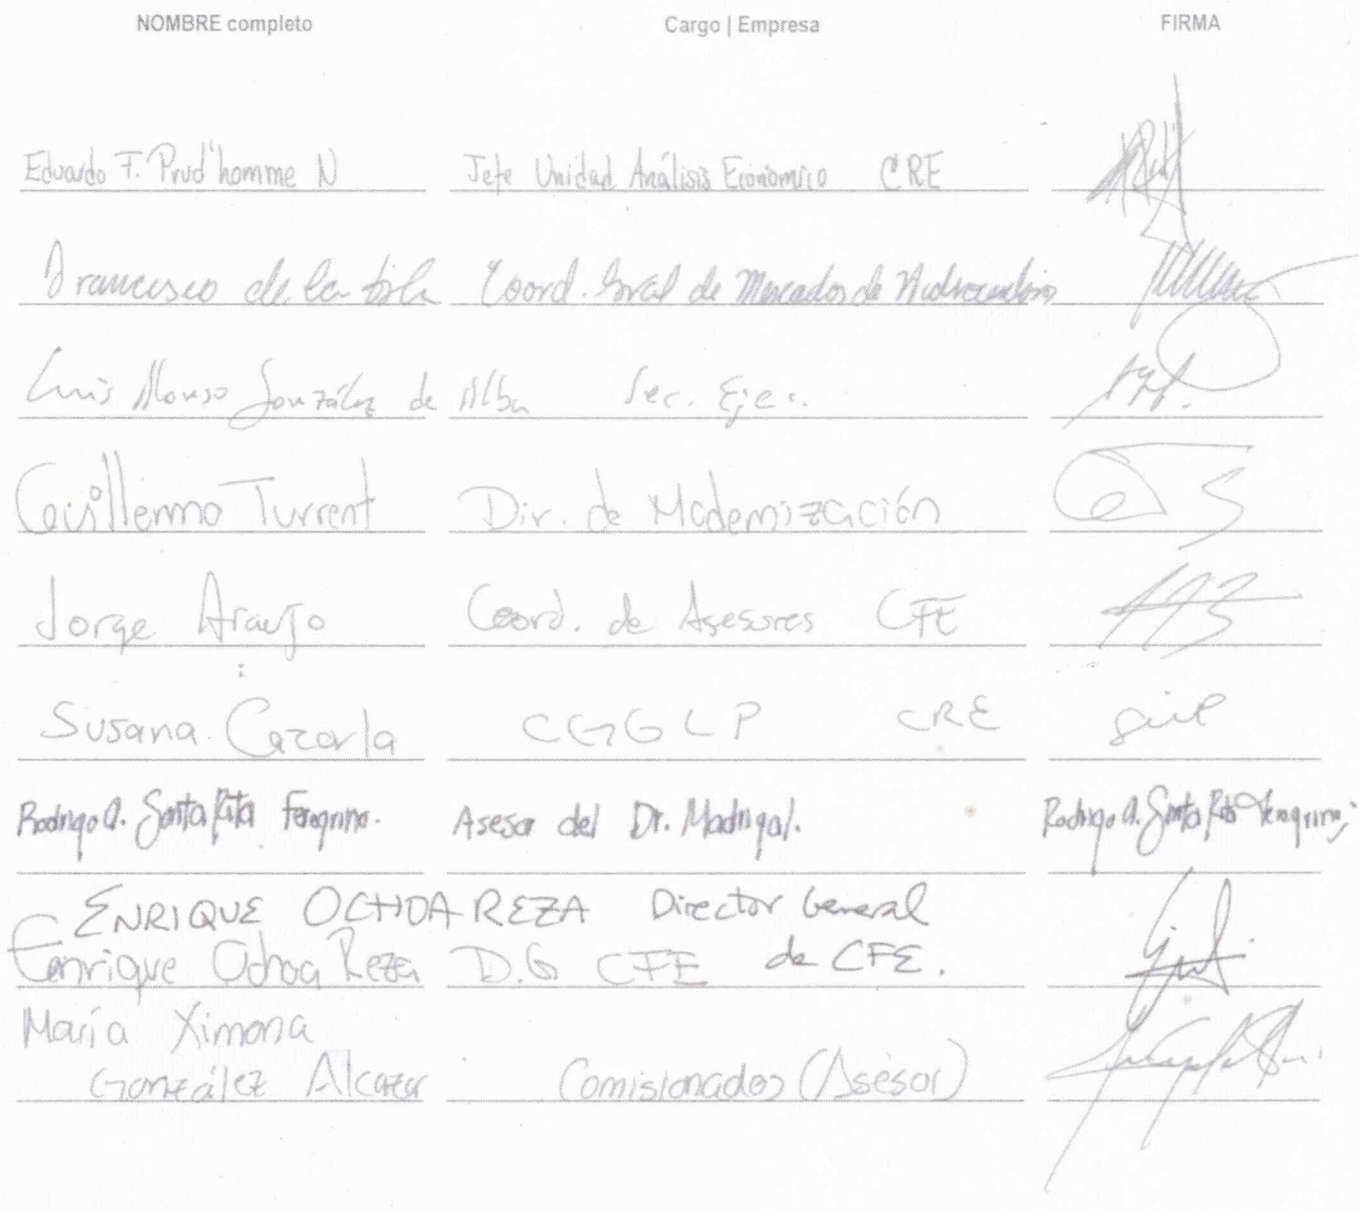 NOMBRE completo Cargo | Empresa FIRMA
Eduardo F. Prud'homme N Jefe Unidad Análisis Económico CRE
Francisco de la Coord. Gral de Mercados de Hidrocarburos
Luis Alonso González de Alba Sec. Ejec.
Guillermo Turrent Dir. de Modernización
Jorge Araujo Coord. de Asesores CFE
Susana Cazorla CGGLP CRE
Rodrigo A. Santa Rita Feregrino. Asesor del Dr. Madrigal. Rodrigo A. Santa Rita Feregrino
ENRIQUE OCHOA REZA Director General
Enrique Ochoa Reza D.G CFE de CFE.
María Ximena
González Alcazar Comisionados (Asesor)